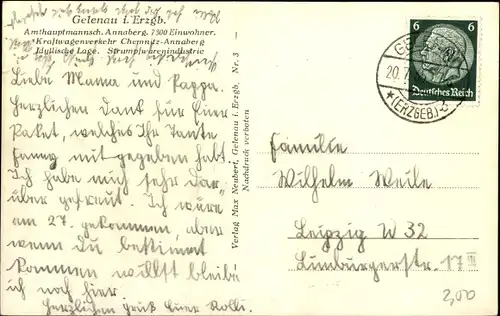 Gelenau i. Erzgb.
Amthauptmannsch. Annaberg. 7300 Einwohner.
Kraftwagenverkehr Chemnitz-Annaberg
Idyllische Lage. Strumpfwarenindustrie
Liebe Mama und Pappa.
Herzlichen Dank für Eure
Paket, welches Ihr Tante
Fanny mit gegeben habt.
Ich habe mich sehr dar
über gefreut. Ich wäre
am 27. gekommen, aber
wenn du bestimmt
kommen willst bleibe
ich noch hier.
Herzlichen Gruß Euer Rolli.
Verlag Max Neubert, Gelenau i. Erzgb. Nr. 3
Nachdruck verboten
6 6
Deutsches Reich
20.7
(ERZGEB.)
Familie
Wilhelm Weile
Leipzig W 32
Limburgerstr. 17 III
2,00